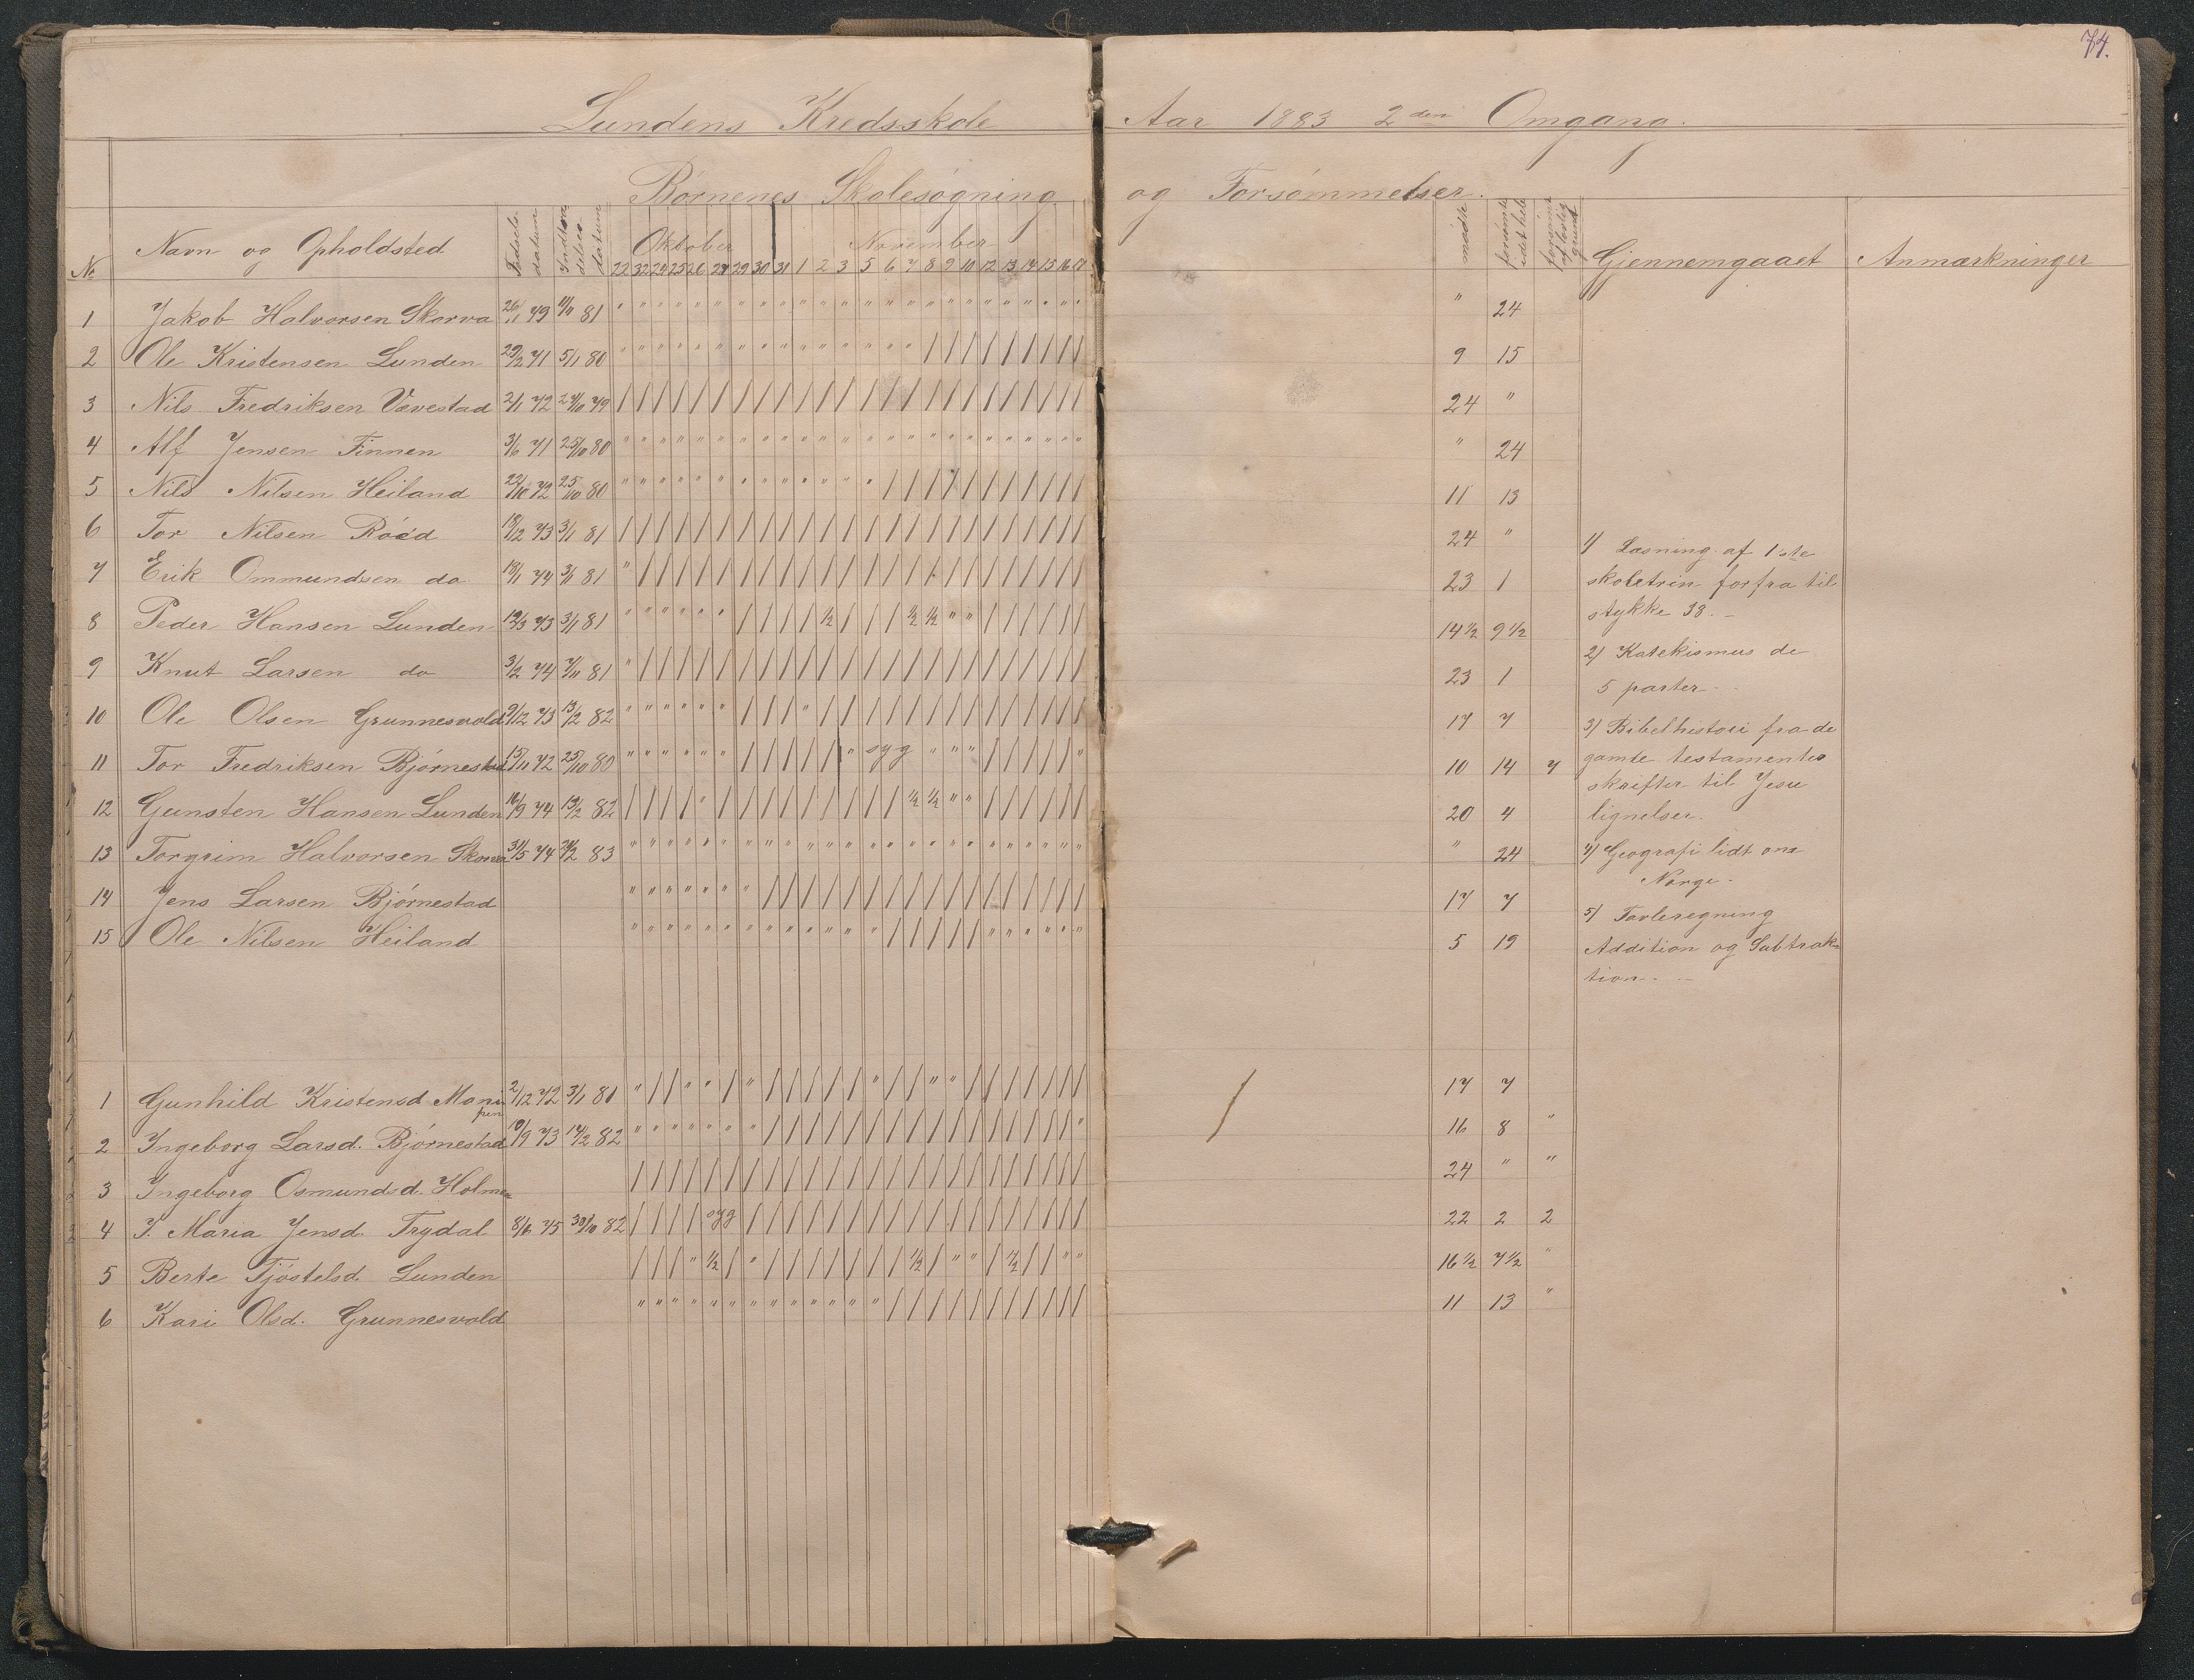 74.
Lundens Kredsskole Aar 1883 2den Omgang.
Børnenes Skolesøgning og Forsømmelser.
No Navn og Opholdsted Fødsels datum Indtræ delses datum Oktober November mødte forsømte idet hele forsømte af lovlig grund Gjennemgaaet Anmærkninger
22 23 24 25 26 27 29 30 31 1 2 3 5 6 7 8 9 10 12 13 14 15 16 17
1 Jakob Halvorsen Skorva 26/1 79 81 " 24
2 Ole Kristensen Lunden 29/2 71 5/1 80 9 15
3 Nils Fredriksen Vævestad 2/1 72 24/10 79 24 "
4 Alf Jensen Finnen 3/6 71 25/10 80 " 24
5 Nils Nilsen Heiland 22/10 72 25/10 80 11 13
6 Tor Nilsen Røed 18/12 73 3/1 81 24 "
7 Erik Ommundsen do 18/1 74 3/1 81 23 1
8 Peder Hansen Lunden 12/3 73 3/1 81 ½ ½ ½ 14½ 9½
9 Knut Larsen do 3/2 74 7/11 81 23 1
10 Ole Olsen Grunnesvold 9/12 73 13/2 82 17 7
11 Tor Fredriksen Bjørnestad 15/11 72 25/10 80 syg 10 14 7
12 Gunsten Hansen Lunden 10/9 74 13/2 82 ½ ½ 20 4
13 Torgrim Halvorsen Skorva 31/5 74 83 " 24
14 Jens Larsen Bjørnestad 17 7
15 Ole Nilsen Heiland 5 19
1) Læsning af 1ste
skoletrin forfra til
stykke 38. -
2) Katekismus de
5 parter.
3) Bibelhistori fra de
gamle testamentes
skrifter til Jesu
lignelser.
4) Geografi lidt om
Norge.
5) Tavleregning
Addition og Subtrak-
tion.
1 Gunhild Kristensd. Monepen 2/12 72 3/1 81 17 7
2 Ingeborg Larsd. Bjørnestad 10/9 73 14/2 82 16 8 "
3 Ingeborg Osmundsd. Holmen 24 " "
4 I. Maria Jensd. Trydal 8/6 75 30/10 82 syg 22 2 2
5 Berte Tjøstelsd. Lunden ½ ½ ½ 16½ 7½ "
6 Kari Olsd. Grunnesvold 11 13 "